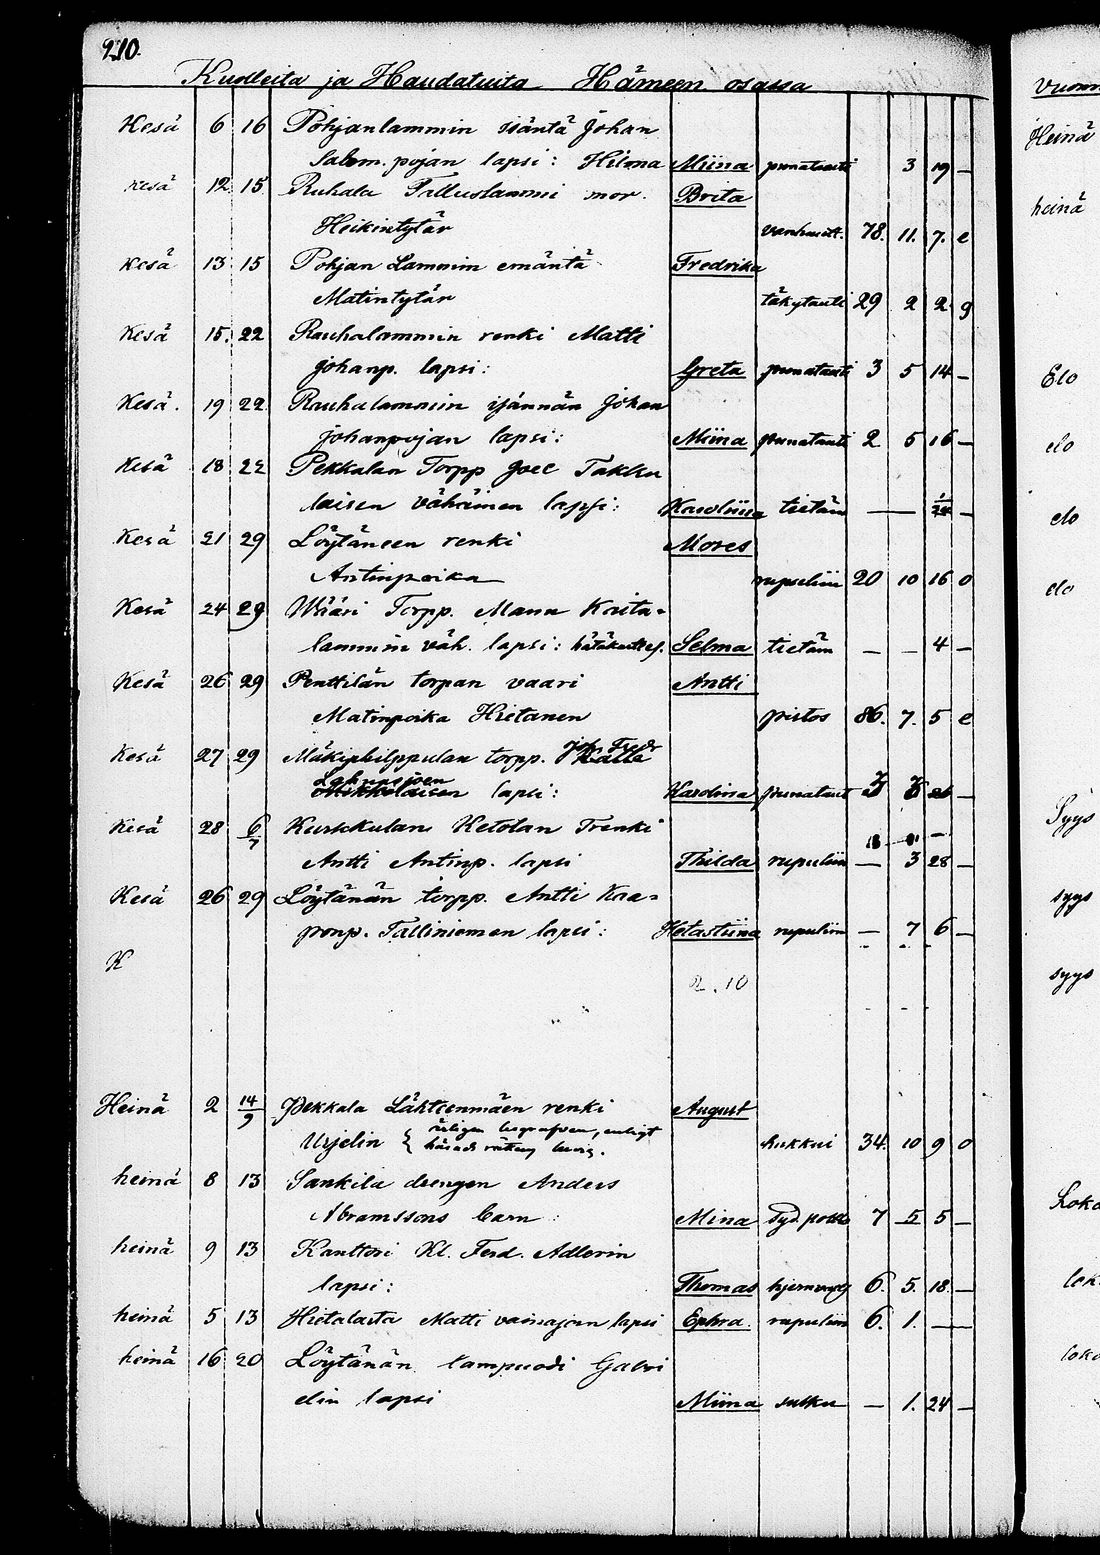 210.
Kuolleita ja Haudatuita Hämeen osassa
Kesä 6 16 Pohjanlammin isäntä Johan
Salom. pojan lapsi: Hilma Miina punatauti 3 19 —
Kesä 12 15 Ruhala Talluslammi mor. Brita
Heikintytär vanhuutt. 78. 11. 7. e
Kesä 13 15 Pohjan Lammin emäntä Fredrika
Matintytär 29 2 2 g
Kesä 15. 22 Rauhalammin renki Matti
Johanp. lapsi: Greta punatauti 3 5 14 —
Kesä. 19 22 Rauhalammin isännän Johan
Johanpojan lapsi: Miina punatauti 2 5 16 —
Kesä 18 22 Pekkalan Torpp Joel Takku
laisen vähäinen lapsi: Karoliina tietäm — 1/24 —
Kesä 21 29 Löytäneen renki Moses
Antinpoika rupuliin 20 10 16 o
Kesä 24 29 Wääri Torpp. Manu Koita-
lammin väh. lapsi: hätäkast. Selma tietäm — — 4 —
Kesä 26 29 Penttilän torpan vaari Antti
Matinpoika Hietanen pistos 86. 7. 5 e
Kesä 27 29 Mäkiphilppulan torpp. Joh. Fredr Kalle
Lahnasjoen
Mikkolaisen lapsi: Karolina punataut —
Kesä 28 6/7 Kurkkulan Ketolan Trenki
Antti Antinp. lapsi Thilda rupuliin — 3 28 —
Kesä 26 29 Löytänän torpp. Antti Kaa-
ponp. Talliniemen lapsi: Hetastiina rupuliin — 7 6 —
K
2.10
Heinä 2 14/9 Pekkala Lähteenmäen renki August
Urjelin { begrafven, enligt
härads rätteng hukkui 34. 10 9 o
heinä 8 13 Sankila drengen Anders
Abramssons barn: Mina 7 5 5 —
heinä 9 13 Kanttori Kl. Ferd. Adlerin
lapsi: Thomas 6. 5. 18. —
heinä 5 13 Hietalasta Matti vainajan lapsi Ephra. rupuliin 6. 1. —
heinä 16 20 Löytänän lampuodi Gabri
elin lapsi Miina — 1. 24 —
Vuonn
Heinä
heinä
Elo
elo
elo
elo
Syys
syys
syys
Loka
loka
loka